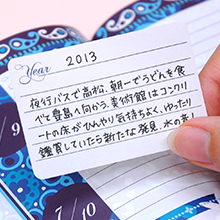 2013
Year
夜行バスで高松。朝一でうどんを食
べて豊島へ向かう。美術館はコンクリ
ートの床がひんやり気持ちよく、ゆったり
鑑賞していたら新たな発見。水の美し
9
7/10